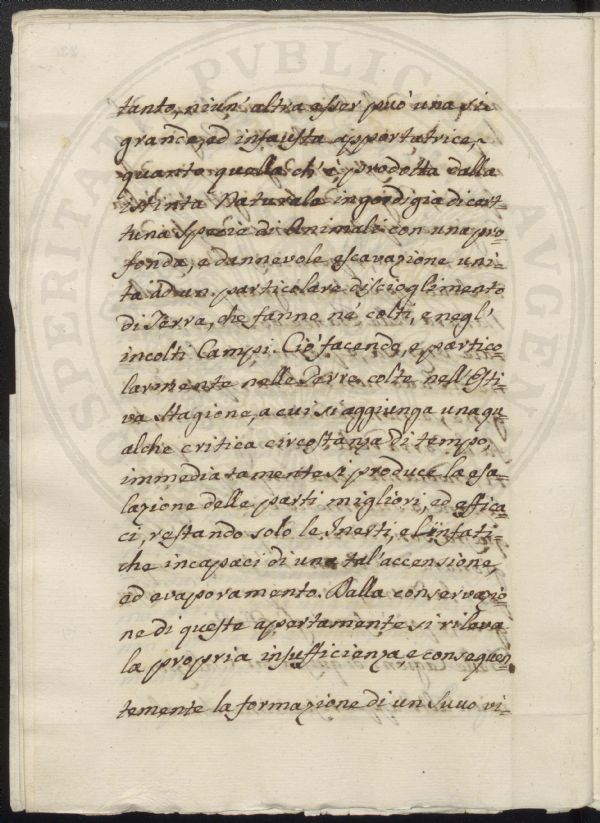 tanto, niun' altra esser può una sì
grande, ed infausta apportatrice,
quanto quella ch' è prodotta dalla
istinta Naturale ingordigia di cert-
tuna Specie di Animali con una pro-
fonda, e dannevole escavazione uni-
ta ad un particolare discioglimento
di Terra, che fanno né colti, e negl'
incolti Campi. Ciò facendo, e partico-
larmente nelle Terre colte nell' Esti-
va Stagione, a cui si aggiunga una qu-
alche critica circostanza di tempo,
immediatamente si produce la esa-
lazione delle parti migliori, ed effica-
ci, restando solo le Inerti, e Linfati-
che incapaci di una tal' accensione,
ad evaporamento. Dalla conservazio-
ne di queste apertamente si rileva
la propria insufficienza, e conseguen-
temente la formazione di un Suuo vi-
PUBLICA
AUGEN